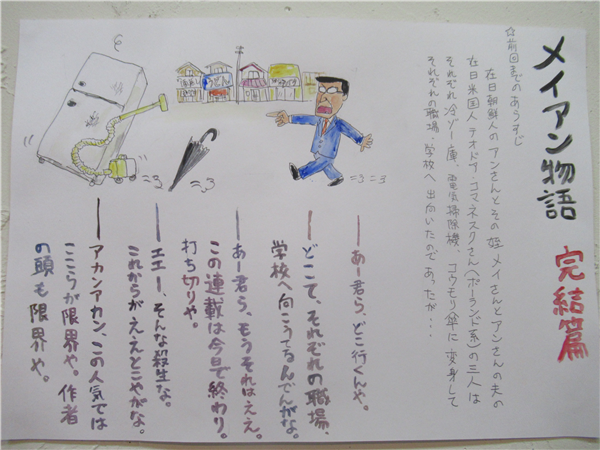 メイアン物語 完結篇
☆前回までのあらすじ
在日朝鮮人のアンさんとその姪メイさんとアンさんの夫の
在日米国人テオドア・コマネスクさん(ポーランド系)の三人は
それぞれ冷ゾー庫、電気掃除機、コウモリ傘に変身して
それぞれの職場・学校へ出向いたのであったが・・・
―あー君ら、どこ行くんや。
―どこて、それぞれの職場、
学校へ向こうてるんでんがな。
―あー君ら、もうそれはええ。
この連載は今日で終わり。
打ち切りや。
―エエー、そんな殺生な。
これからがええとこやがな。
―アカンアカン、この人気では
ここらが限界や。作者
の頭も限界や。